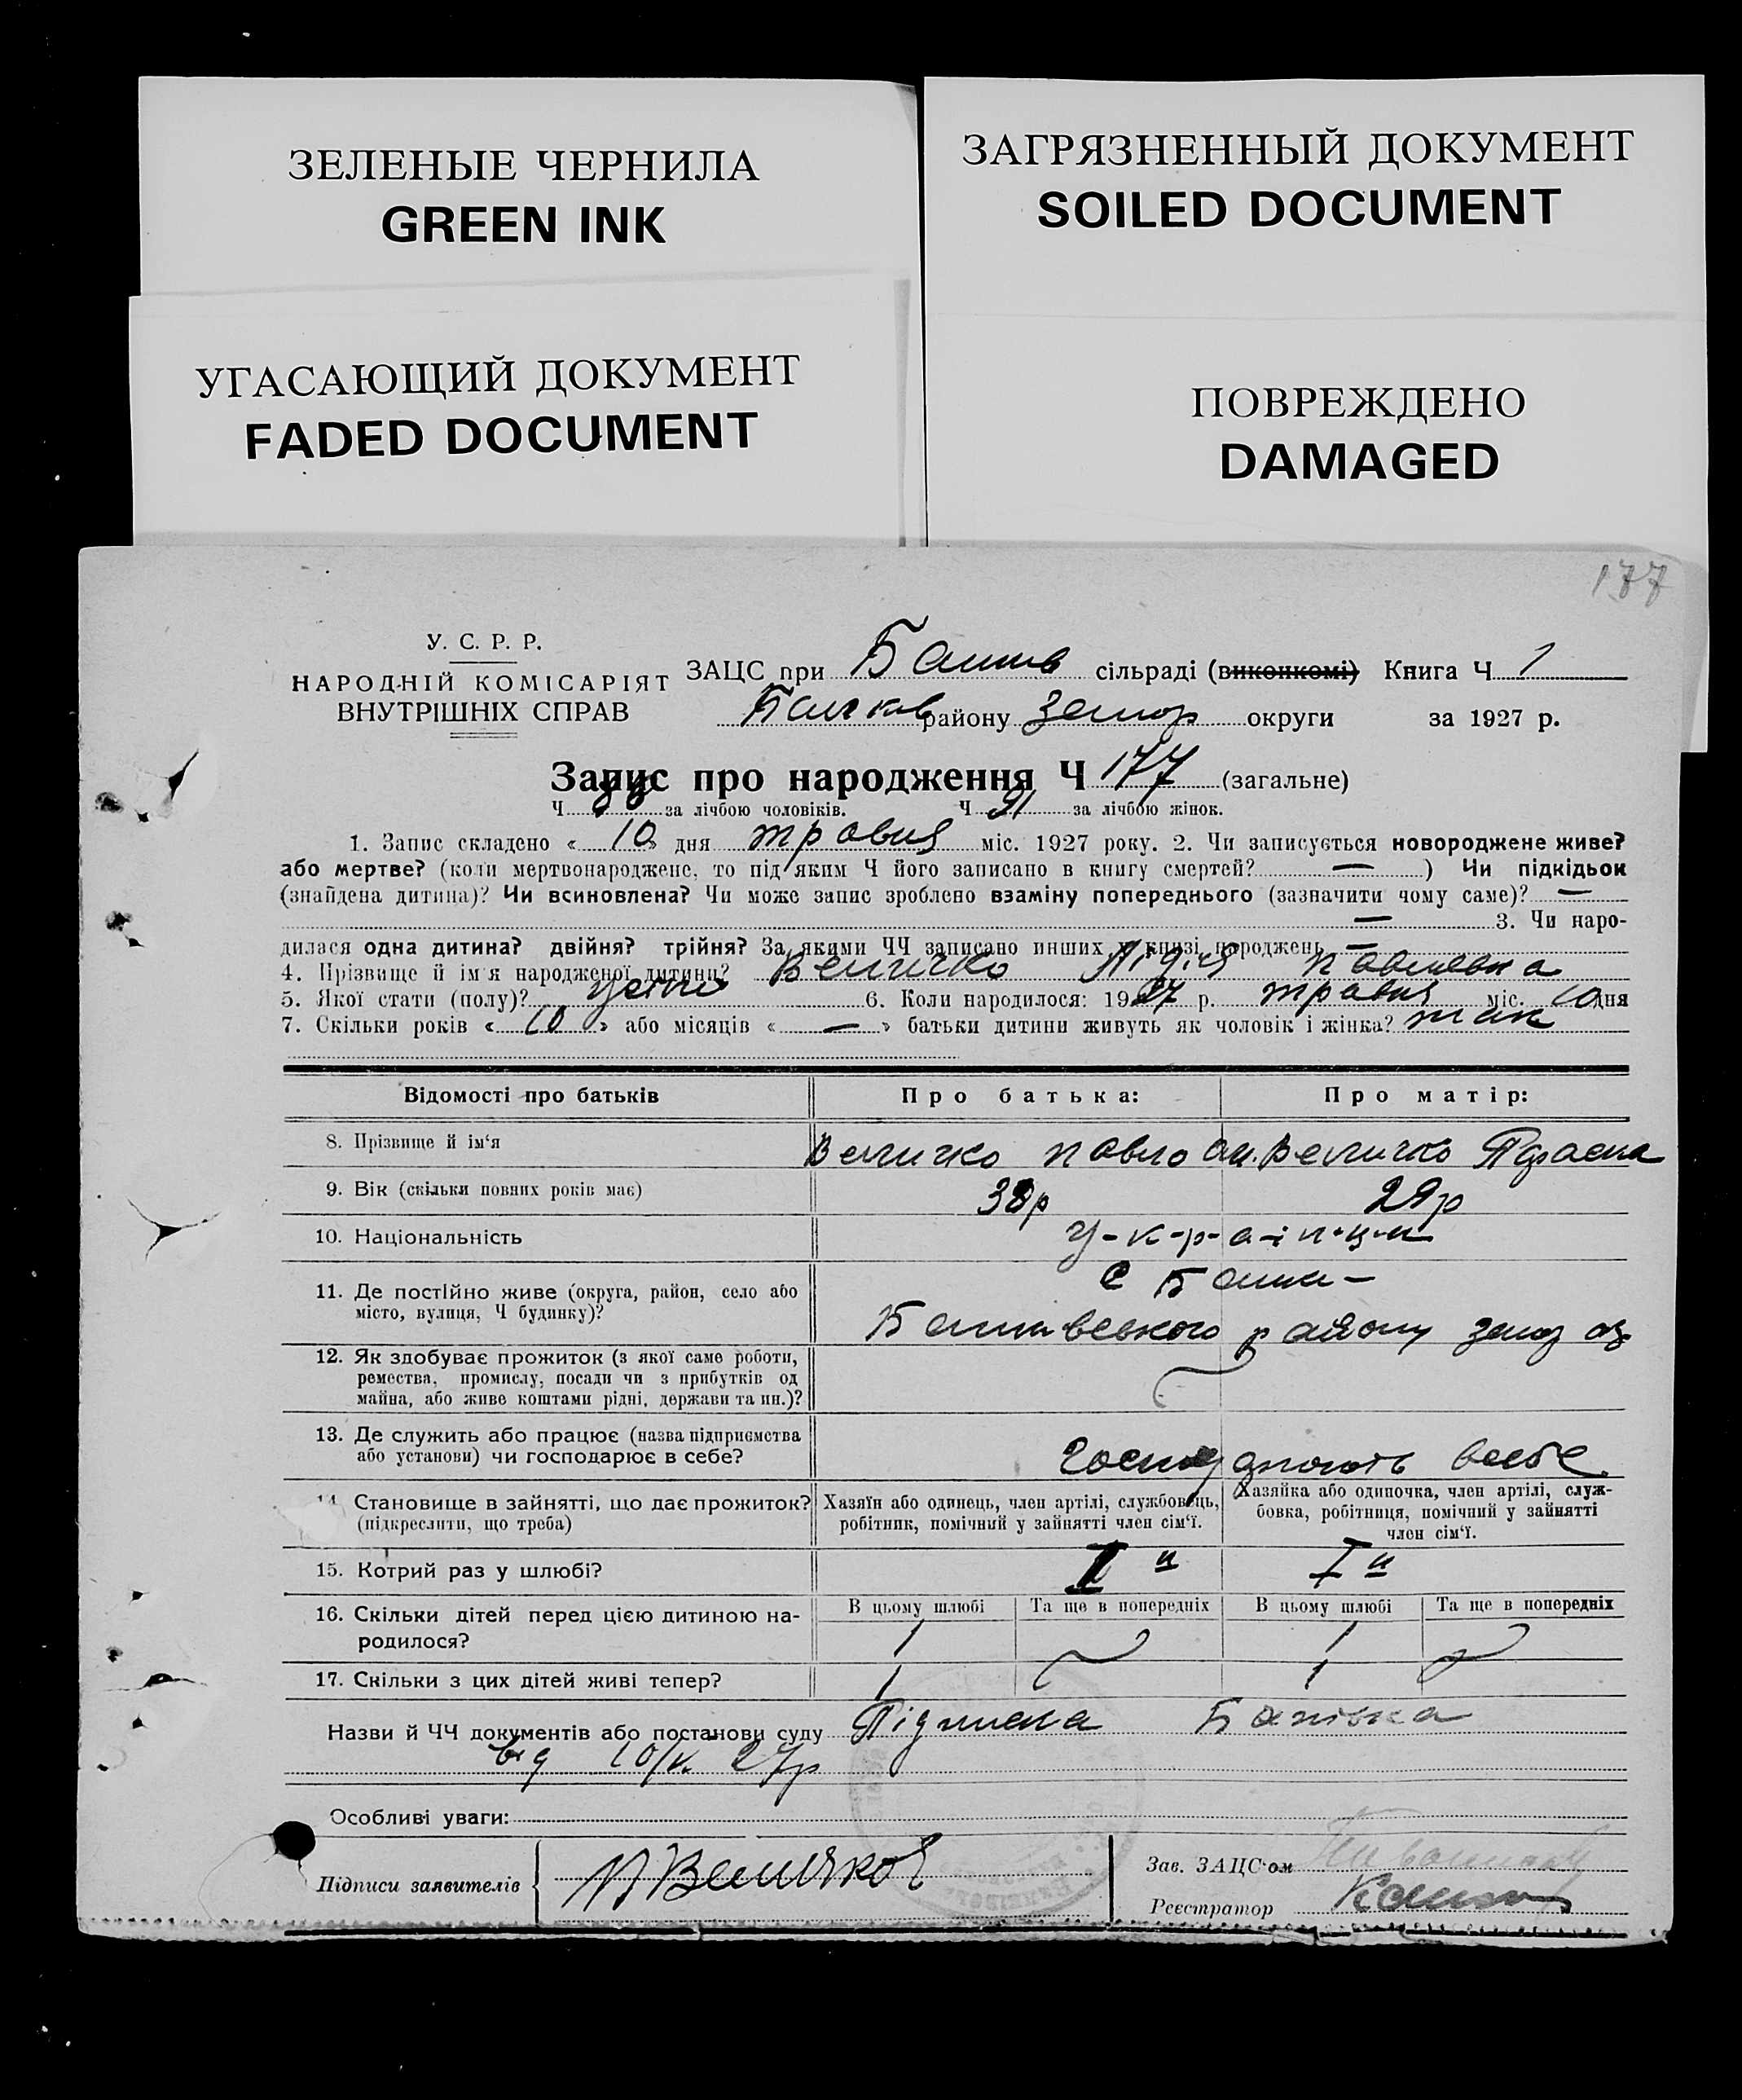 ЗЕЛЕНЫЕ ЧЕРНИЛА
GREEN INK
ЗАГРЯЗНЕННЫЙ ДОКУМЕНТ
SOILED DOCUMENT
УГАСАЮЩИЙ ДОКУМЕНТ
FADED DOCUMENT
ПОВРЕЖДЕНО
DAMAGED
177
У. С. Р. Р.
НАРОДНІЙ КОМІСАРІЯТ
ВНУТРІШНІХ СПРАВ
ЗАЦС при сільраді (виконкомі) Книга Ч 1
району Запор округи за 1927 р.
Запис про народження Ч 177 (загальне)
Ч за лічбою чоловіків. Ч 91 за лічбою жінок.
1. Запис складено « 10 » дня травня міс. 1927 року. 2. Чи записується новороджене живе?
або мертве? (коли мертвонароджене, то під яким Ч його записано в книгу смертей? — ) Чи підкідьок
(знайдена дитина)? Чи всиновлена? Чи може запис зроблено взаміну попереднього (зазначити чому саме)? —
— 3. Чи наро-
дилася одна дитина? двійня? трійня? За якими ЧЧ записано инших у книзі народжень —
4. Прізвище й ім'я народженої дитини? Величко Лідія Павлівна
5. Якої стати (полу)? 6. Коли народилося: 1927 р. травня міс. 10 дня
7. Скільки років « 10 » або місяців « — » батьки дитини живуть як чоловік і жінка? так
Відомості про батьків
Про батька:
Про матір:
8. Прізвище й ім'я
Величко Павло Ол. Величко Параска
9. Вік (скільки повних років має)
38р 29р
10. Національність
У-к-р-а-ї-н-ц-и
11. Де постійно живе (округа, район, село або
місто, вулиця, Ч будинку)?
с
району запор ок
12. Як здобуває прожиток (з якої саме роботи,
ремества, промислу, посади чи з прибутків од
майна, або живе коштами рідні, держави та ин.)?
13. Де служить або працює (назва підприємства
або установи) чи господарює в себе?
Господарюють всебе
14. Становище в зайнятті, що дає прожиток?
(підкреслити, що треба)
Хазяїн або одинець, член артілі, службовець,
робітник, помічний у зайнятті член сім'ї.
Хазяйка або одиночка, член артілі, служ-
бовка, робітниця, помічний у зайнятті
член сім'ї.
15. Котрий раз у шлюбі?
I й
16. Скільки дітей перед цією дитиною на-
родилося?
В цьому шлюбі
Та ще в попередніх
В цьому шлюбі
Та ще в попередніх
1 1
17. Скільки з цих дітей живі тепер?
1 1
Назви й ЧЧ документів або постанови суду
від 10/V 27р
Особливі уваги:
Підписи заявителів
Зав. ЗАЦС'ом
Реєстратор